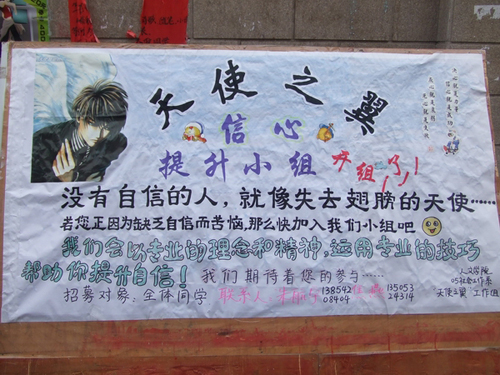 天使之翼
信心
提升小组 开组了!
没有自信的人,就像失去翅膀的天使……
若您正因为缺乏自信而苦恼,那么快加入我们小组吧
我们会以专业的理念和精神,运用专业的技巧
帮助你提升自信! 我们期待着您的参与……
招募对象:全体同学 联系人:
13854208404
13505324314
人文学院
05社会工作系
"天使之翼"工作组